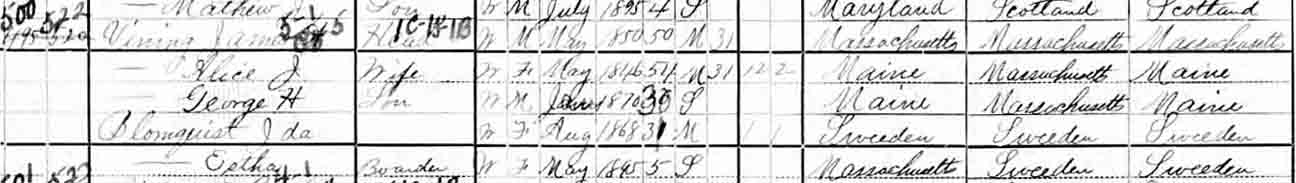 500 522 — Mathew J Son W M July 1895 4 S Maryland Scotland Scotland
Vining James Head W M May 1850 50 M 31 Massachusetts Massachusetts Massachusetts
— Alice J Wife W F May 1846 54 M 31 12 2 Maine Massachusetts Maine
— George H Son W M 1870 30 S Maine Massachusetts Maine
Blomquist Ida W F Aug 1868 31 M 1 1 Sweeden Sweeden Sweeden
— Boarder W F May 1895 5 S Massachusetts Sweeden Sweeden